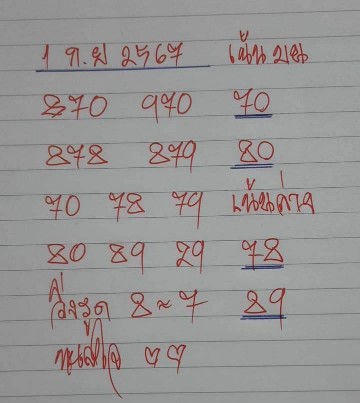 1 พ.ย 2567 เน้นบน
870 970 70
878 879 80
70 78 79 เน้นล่าง
80 89 29 78
วิ่งรูด 8~7 89